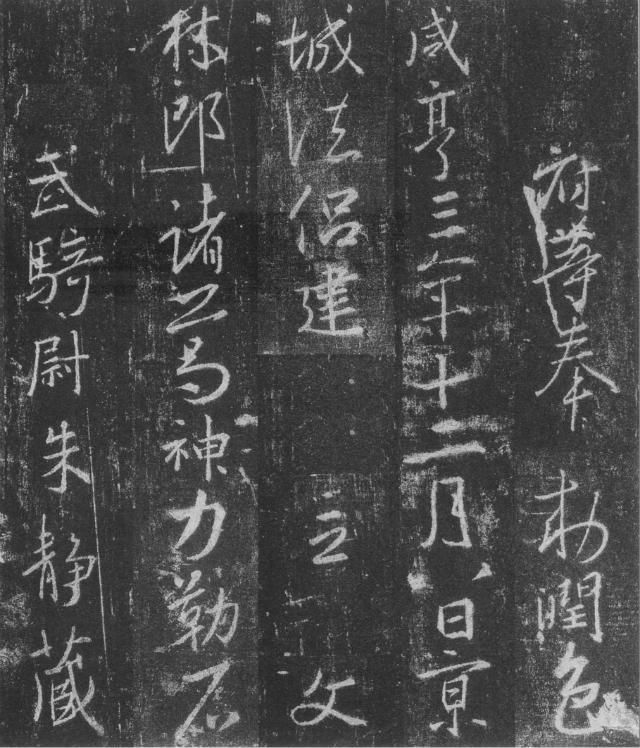 府等奉 勅潤色
咸亨三年十二月八日京
城法侶建 立 文
林郎諸葛神力勒石
武騎尉朱静藏